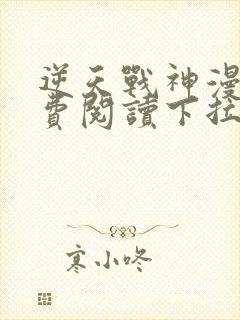 逆天戰神漫
費閱讀下拉
寒小咚